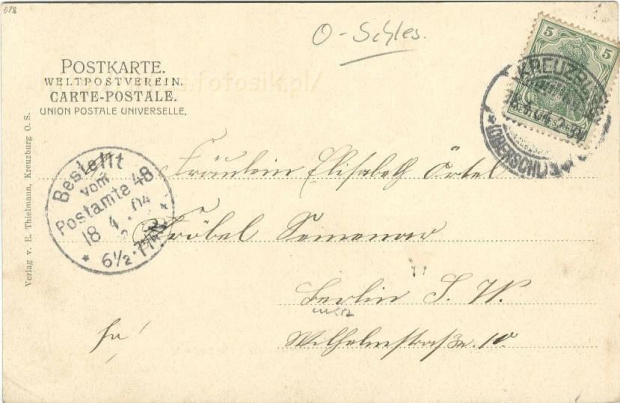 O-Schles.
POSTKARTE.
WELTPOSTVEREIN.
CARTE-POSTALE.
UNION POSTALE UNIVERSELLE.
5 5
KREUZBURG
(OBERSCHL)
Bestellt
vom
Postamte 48
18 4 04
6½-7½N
Fräulein Elisabeth Örtel
Fröbel Seminar
Berlin S. W.
Wilhelmstraße 10
Verlag v. E. Thielmann, Kreuzburg O. S.